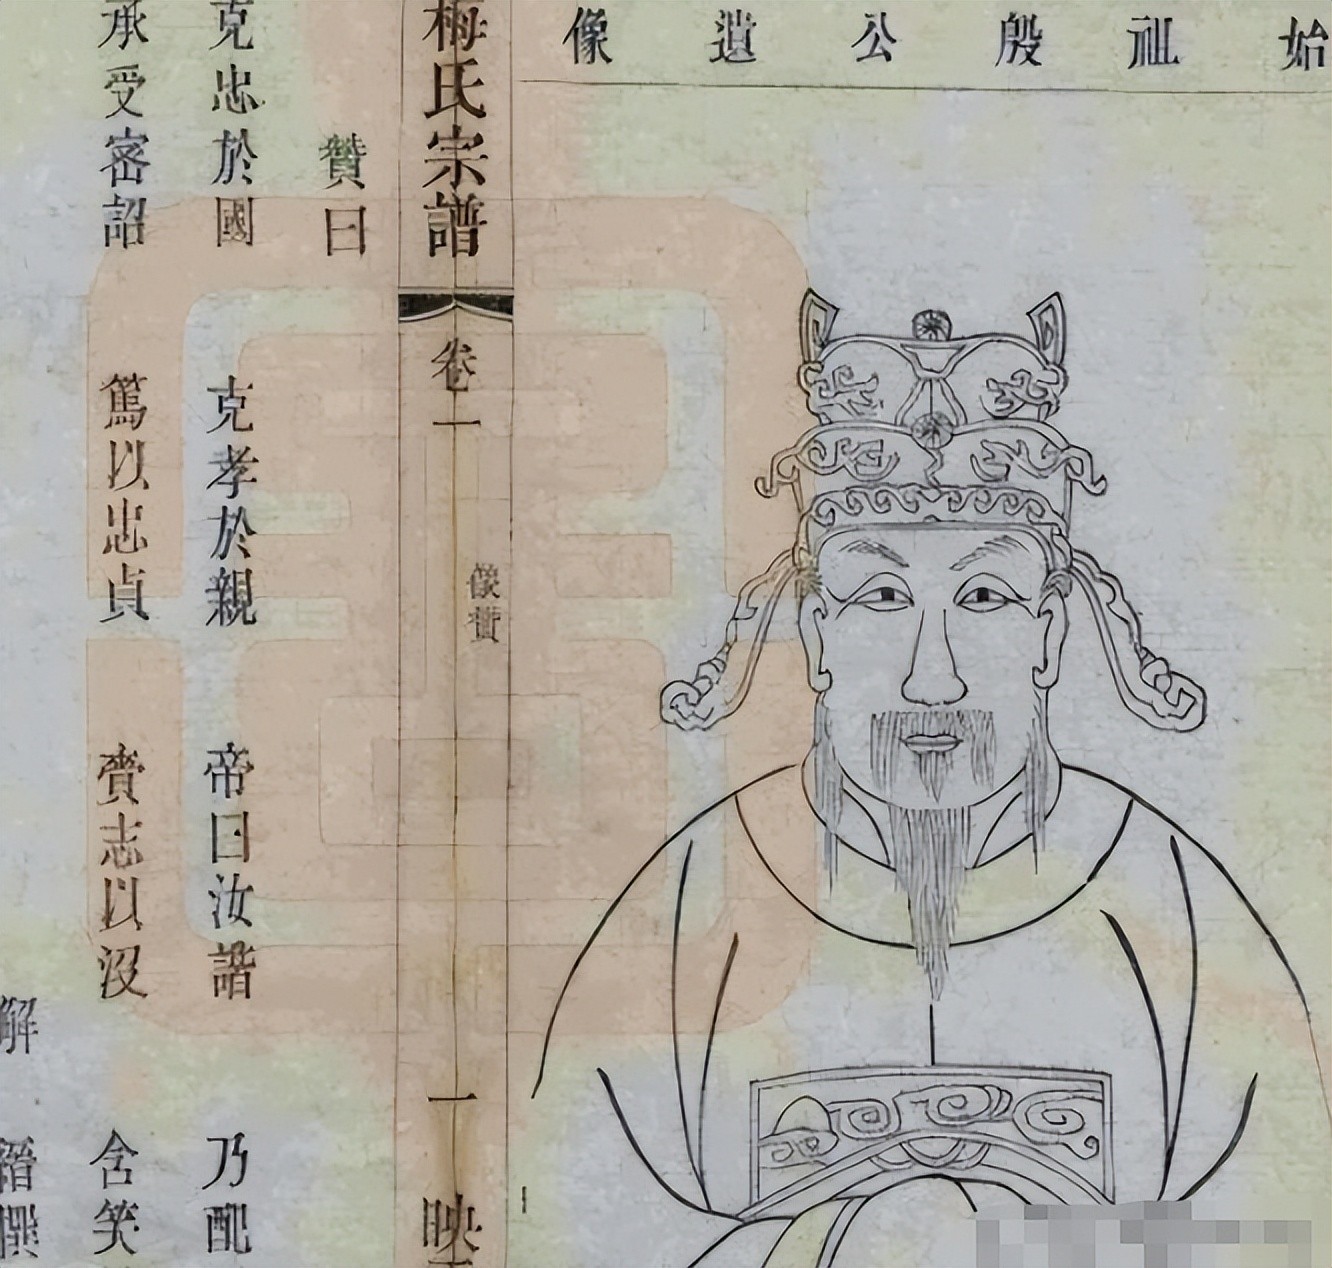 始祖殷公遺像
梅氏宗譜
卷一
像贊
一
映
贊曰
克忠於國 克孝於親 帝曰汝諧 乃配
承受密詔 篤以忠貞 賫志以沒 含笑
解